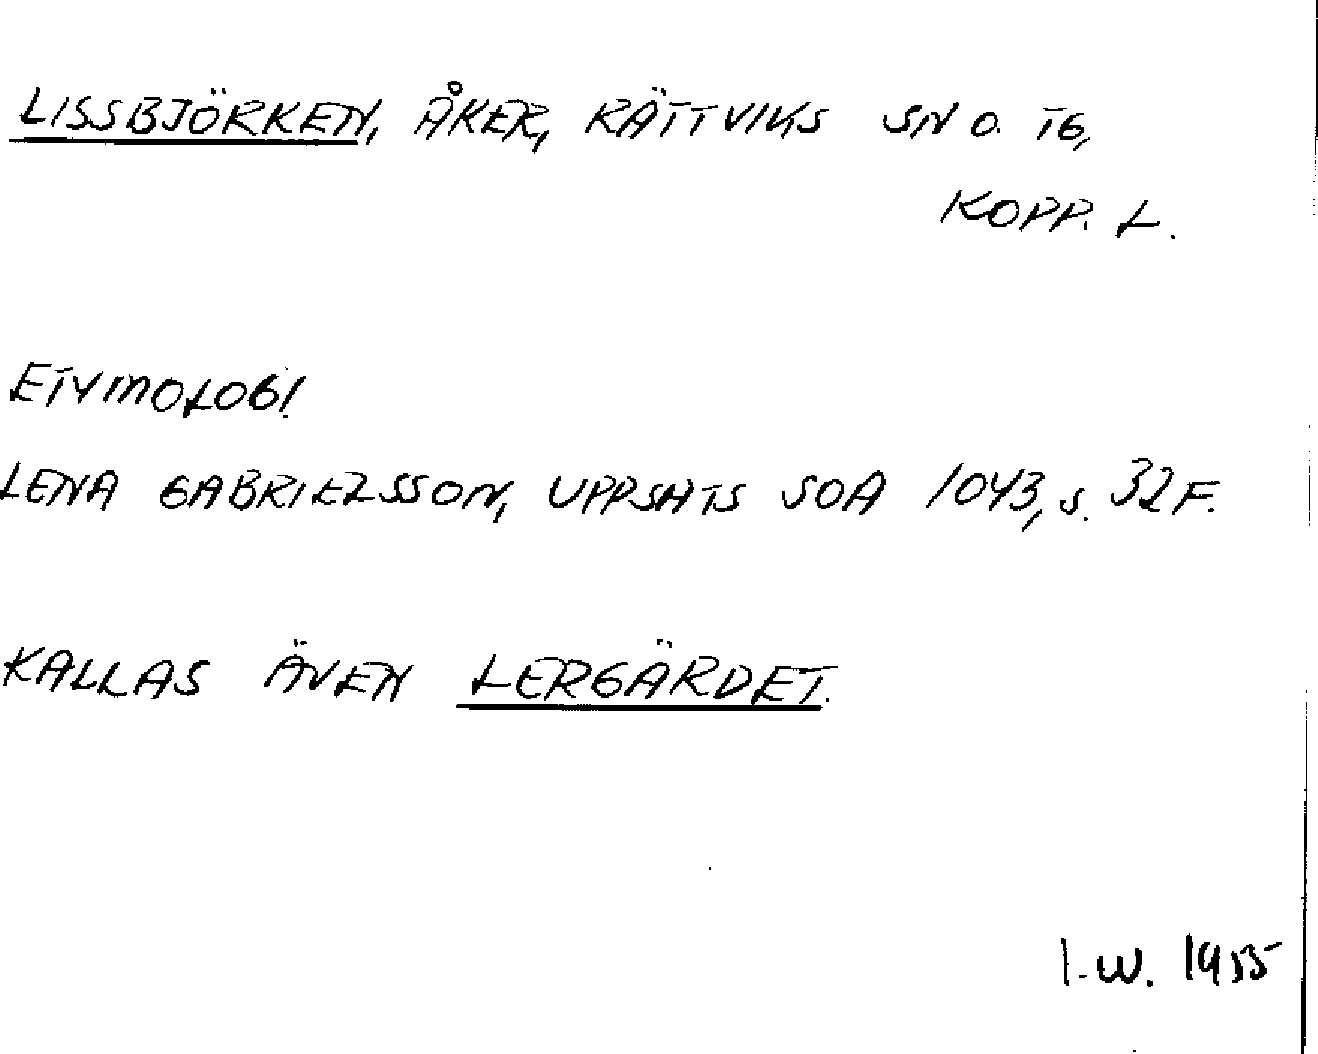 LISSBJÖRKEN, ÅKER, RÄTTVIKS SN O. TG,
KOPP. L.
ETYMOLOGI
LENA GABRIELSSON, UPPSATS SOA 1043, S. 32F.
KALLAS ÄVEN LERGÄRDET.
I.W. 1955